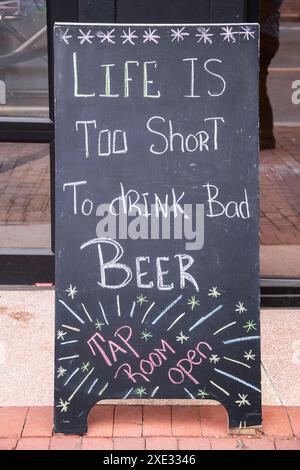 Life is
Too Short
To drink Bad
Beer
Tap
Room open